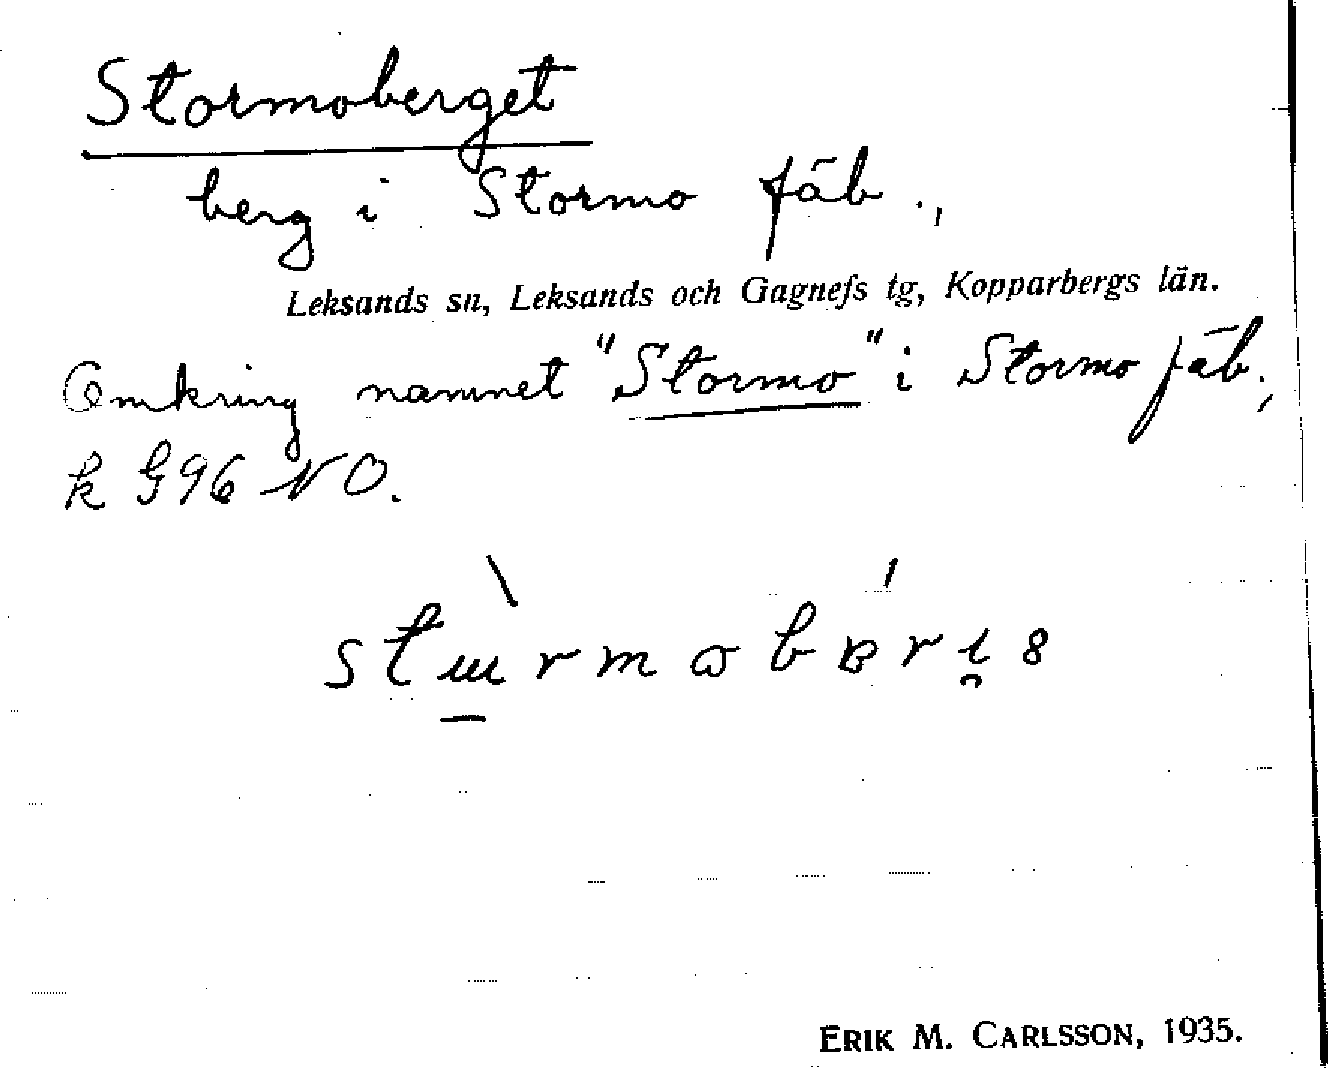 Stormoberget
berg i Stormo fäb.,
Leksands sn, Leksands och Gagnefs tg, Kopparbergs län.
Omkring namnet "Stormo" i Stormo fäb.,
k G96 NO.
ERIK M. CARLSSON, 1935.